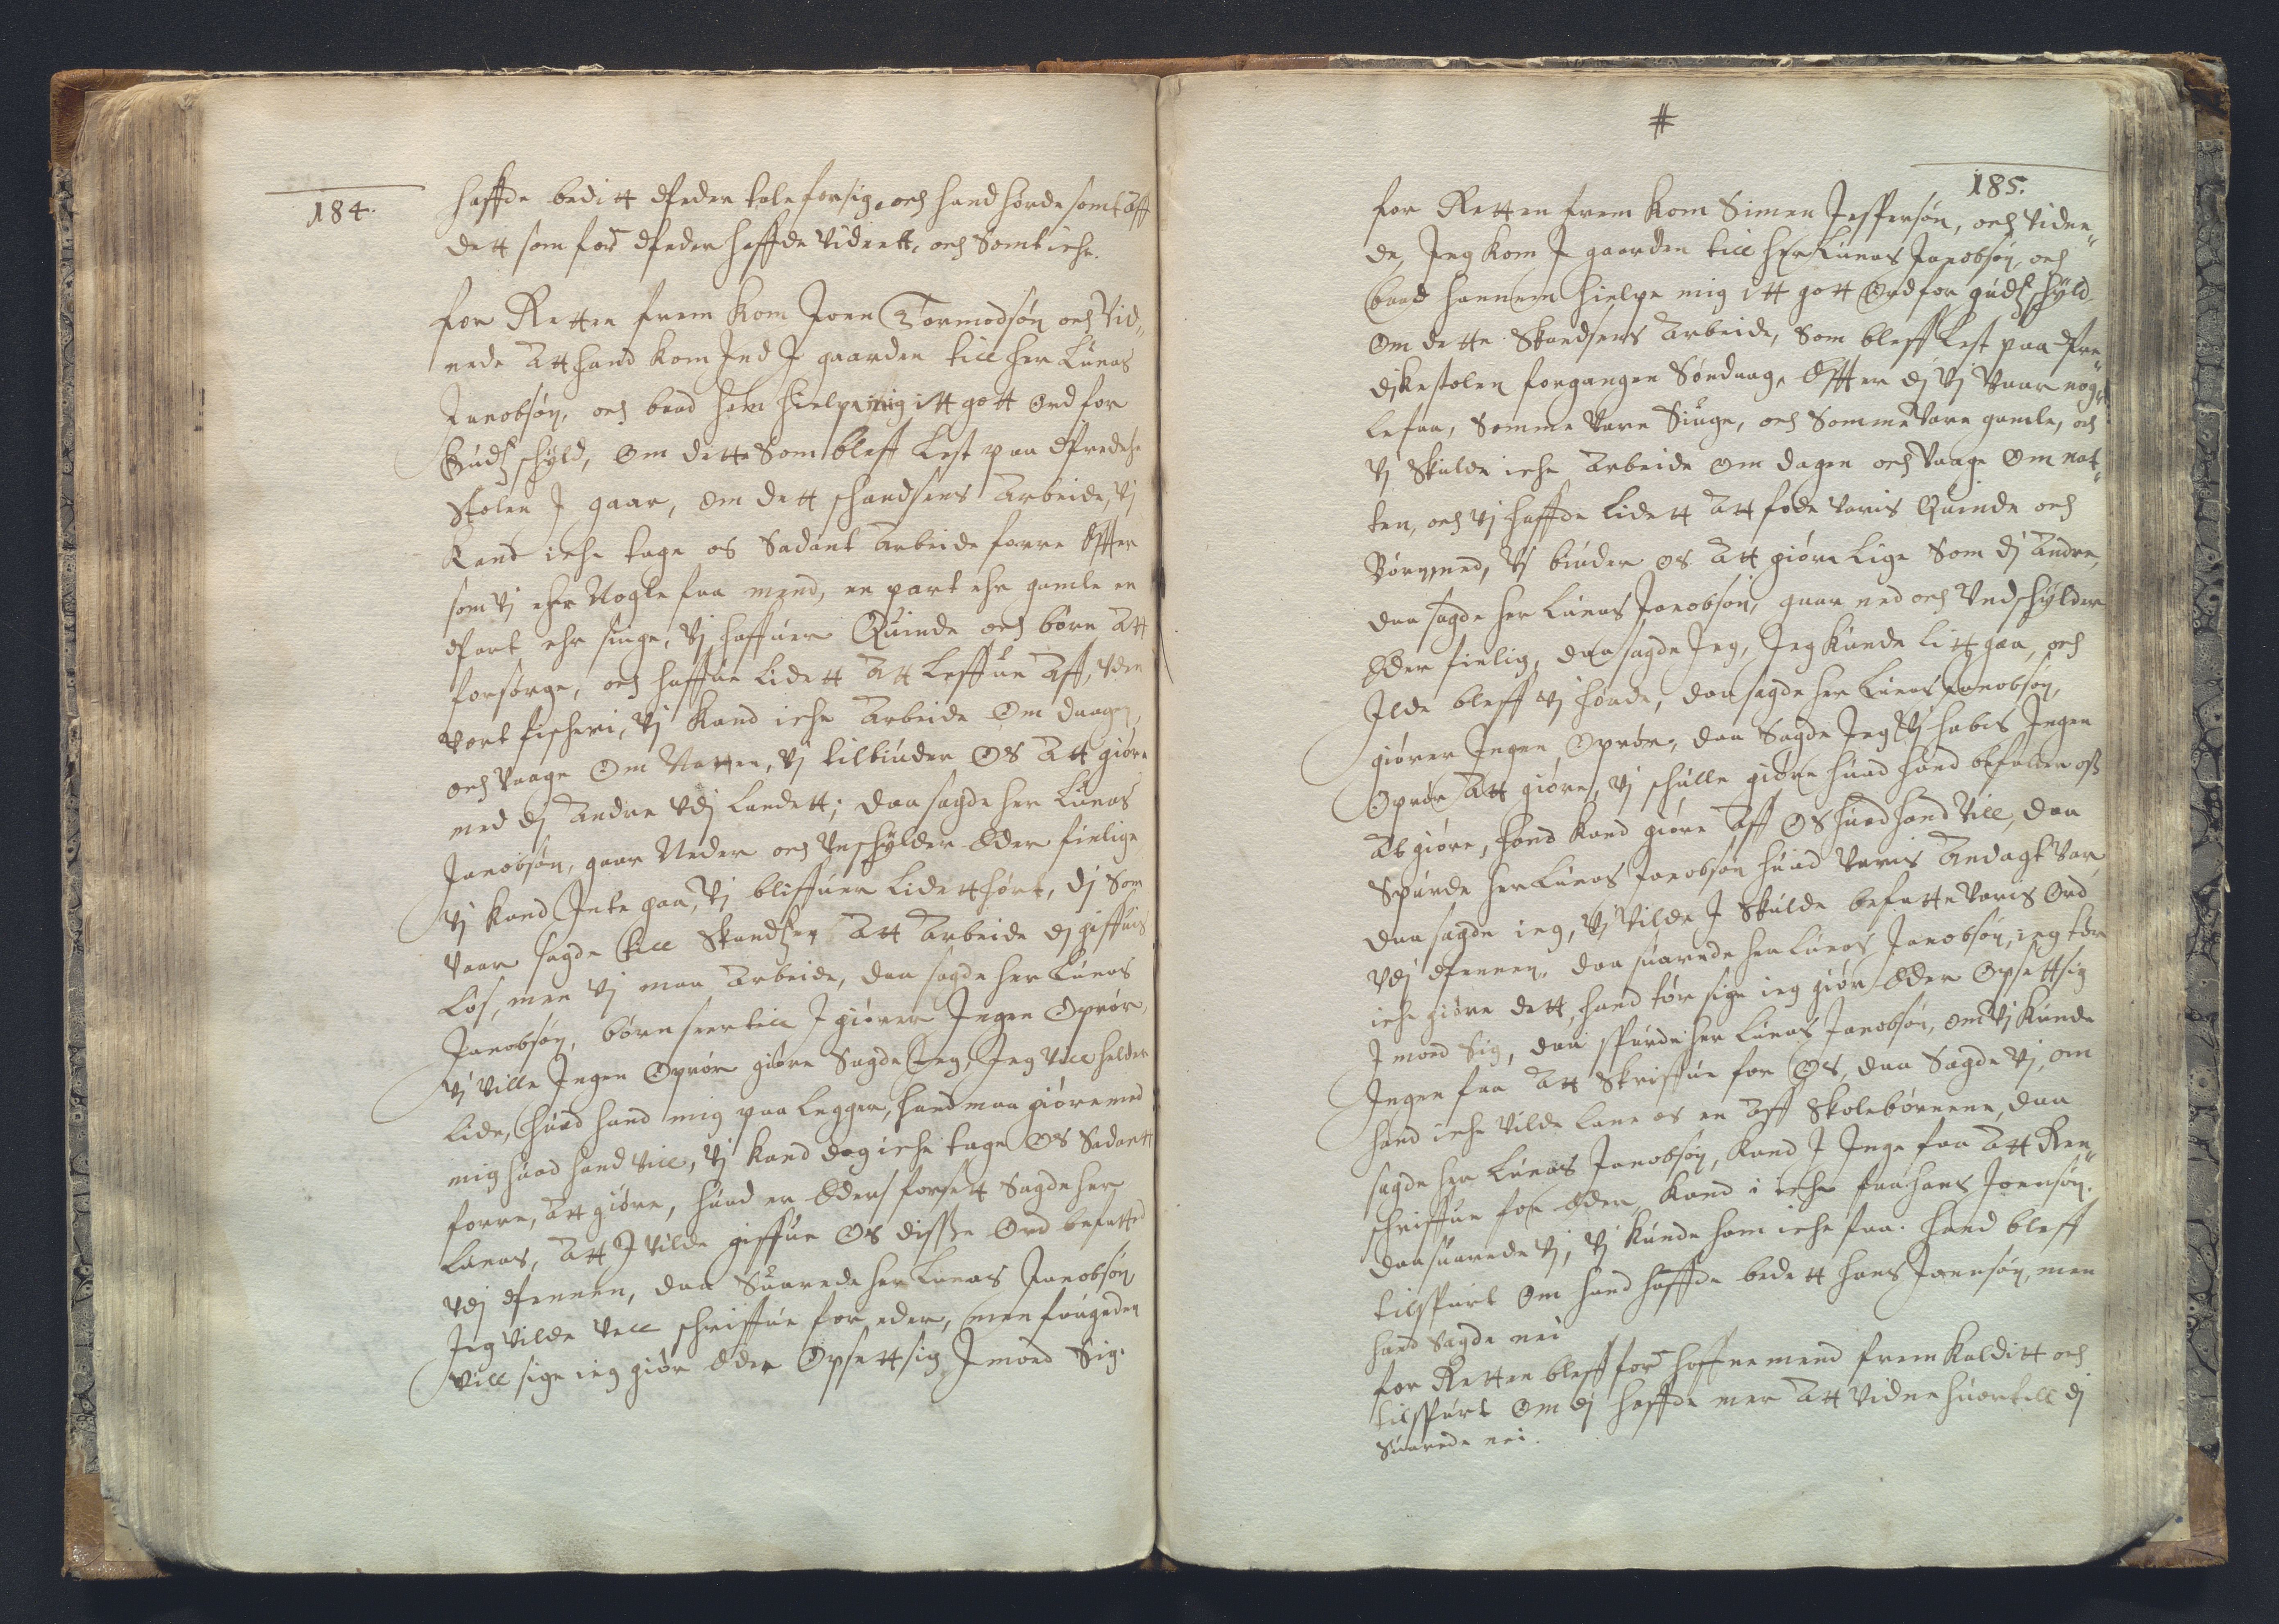 184.
haffde beditt Peder tale for sig, och hand hørde somt aff
dett som for: Peder haffde Vidnett, och Somt iche.
for Retten frem kom Joen Tormodsøn och Vid„
nede att hand kom Ind I gaarden till her Lucas
Jacobsøn, och baad ham hielpe mig itt gott ord for
Gudtz schyld, om dette Som bleff Lest paa Predche
Stolen I gaar, om dett schandsens Arbeide, Vj
Kand iche tage os Sadant Arbeide forre Effter
som Vj ehr Nogle faa mend, en part ehr gamle en
Part ehr siuge, Vj haffuer Quinde och børn att
forsørge, och haffue Lidett att Leffue aff, vden
Vort fischeri, Vj Kand iche Arbeide om daagen,
och Vaage om Natten, Vj tilbiuder os att giøre
med dj Andre Vdj Landett; daa sagde her Lucas
Jacobsøn, gaar Neder och Vnschylder Eder finlige
Vj Kand Inte gaa, Vj bliffuer Lidett hørt, dj Som
Vaar sagde till Skandtzen att Arbeide dj giffuis
Løs, men Vj maa Arbeide, daa sagde her Lucas
Jacobsøn, børn seer till I giører Ingen Oprør,
Vj Ville Ingen Oprør giøre Sagde Jeg, Jeg Vill helder
Lide, huad hand mig paa Legger, hand maa giøre med
mig huad hand Vill, Vj Kand dog iche tage os Sadantt
forre, att giøre, huad er Eders forsett Sagde her
Lucas, att I Vilde giffue os disse Ord befatted
Vdj Pennen, daa Suarede her Lucas Jacobsøn
Jeg Vilde Vell schriffue for eder, men fougeden
Vill sige ieg giør Eder Opsettsig Imoed Sig.
#
185.
for Retten frem kom Simen Jespersøn, och Vidne„
de, Jeg kom I gaarden till her Lucas Jacobsøn, och
baad hannem hielpe mig itt gott Ord for gudtz schyld,
Om dette Skandsens Arbeide, Som bleff Lest paa Pre„
dikestolen forgangen Søndaag, Effter dj Vj Vaar nog„
le faa, Somme Vare Siuge, och Somme Vare gamle, och
Vj Skulde iche Arbeide om dagen och Vaage om nat„
ten, och Vj haffde Lidett att føde Voris Quinde och
Børn med, Vj biuder os att giøre Lige Som dj Andre,
daa sagde her Lucas Jacobsøn, gaar ned och Vndschylder
Eder finlig, daa sagde Jeg, Jeg Kunde Litt gaa, och
Ilde bleff Vj hørde, daa sagde her Lucas Jacobsøn,
giører Ingen Oprør, daa Sagde Jeg Vj habis Ingen
Oprør att giøre, Vj schulle giøre huad hand befaller oss
at giøre, hand kand giøre aff os huad hand Vill, daa
Spurde her Lucas Jacobsøn huad Voris Andagt Var,
daa sagde ieg, Vj Vilde I Skulde befatte Voris Ord
Vdj Pennen, daa suarede her Lucas Jacobsøn, ieg tør
iche giøre dett, hand tør sige ieg giør Eder Opsettsig
I moed Sig, daa spurde her Lucas Jacobsøn, om Vj Kunde
Ingen faa att Skriffue for Os, daa Sagde Vj, om
hand iche Vilde Lane os en aff Skolebørnene, daa
sagde her Lucas Jacobsøn, Kand I Inge faa att Ren„
schriffue for Eder, Kand i iche faa hans Joensøn,
daa suarede Vj, Vj Kunde ham iche faa. Hand bleff
tilspurt Om hand haffde bedett hans Joensøn, men
hand Sagde nei
for Retten bleff for: hoffnemend frem Kalditt och
tilspurt Om dj haffde mer att Vidne huortill dj
Suarede nei.